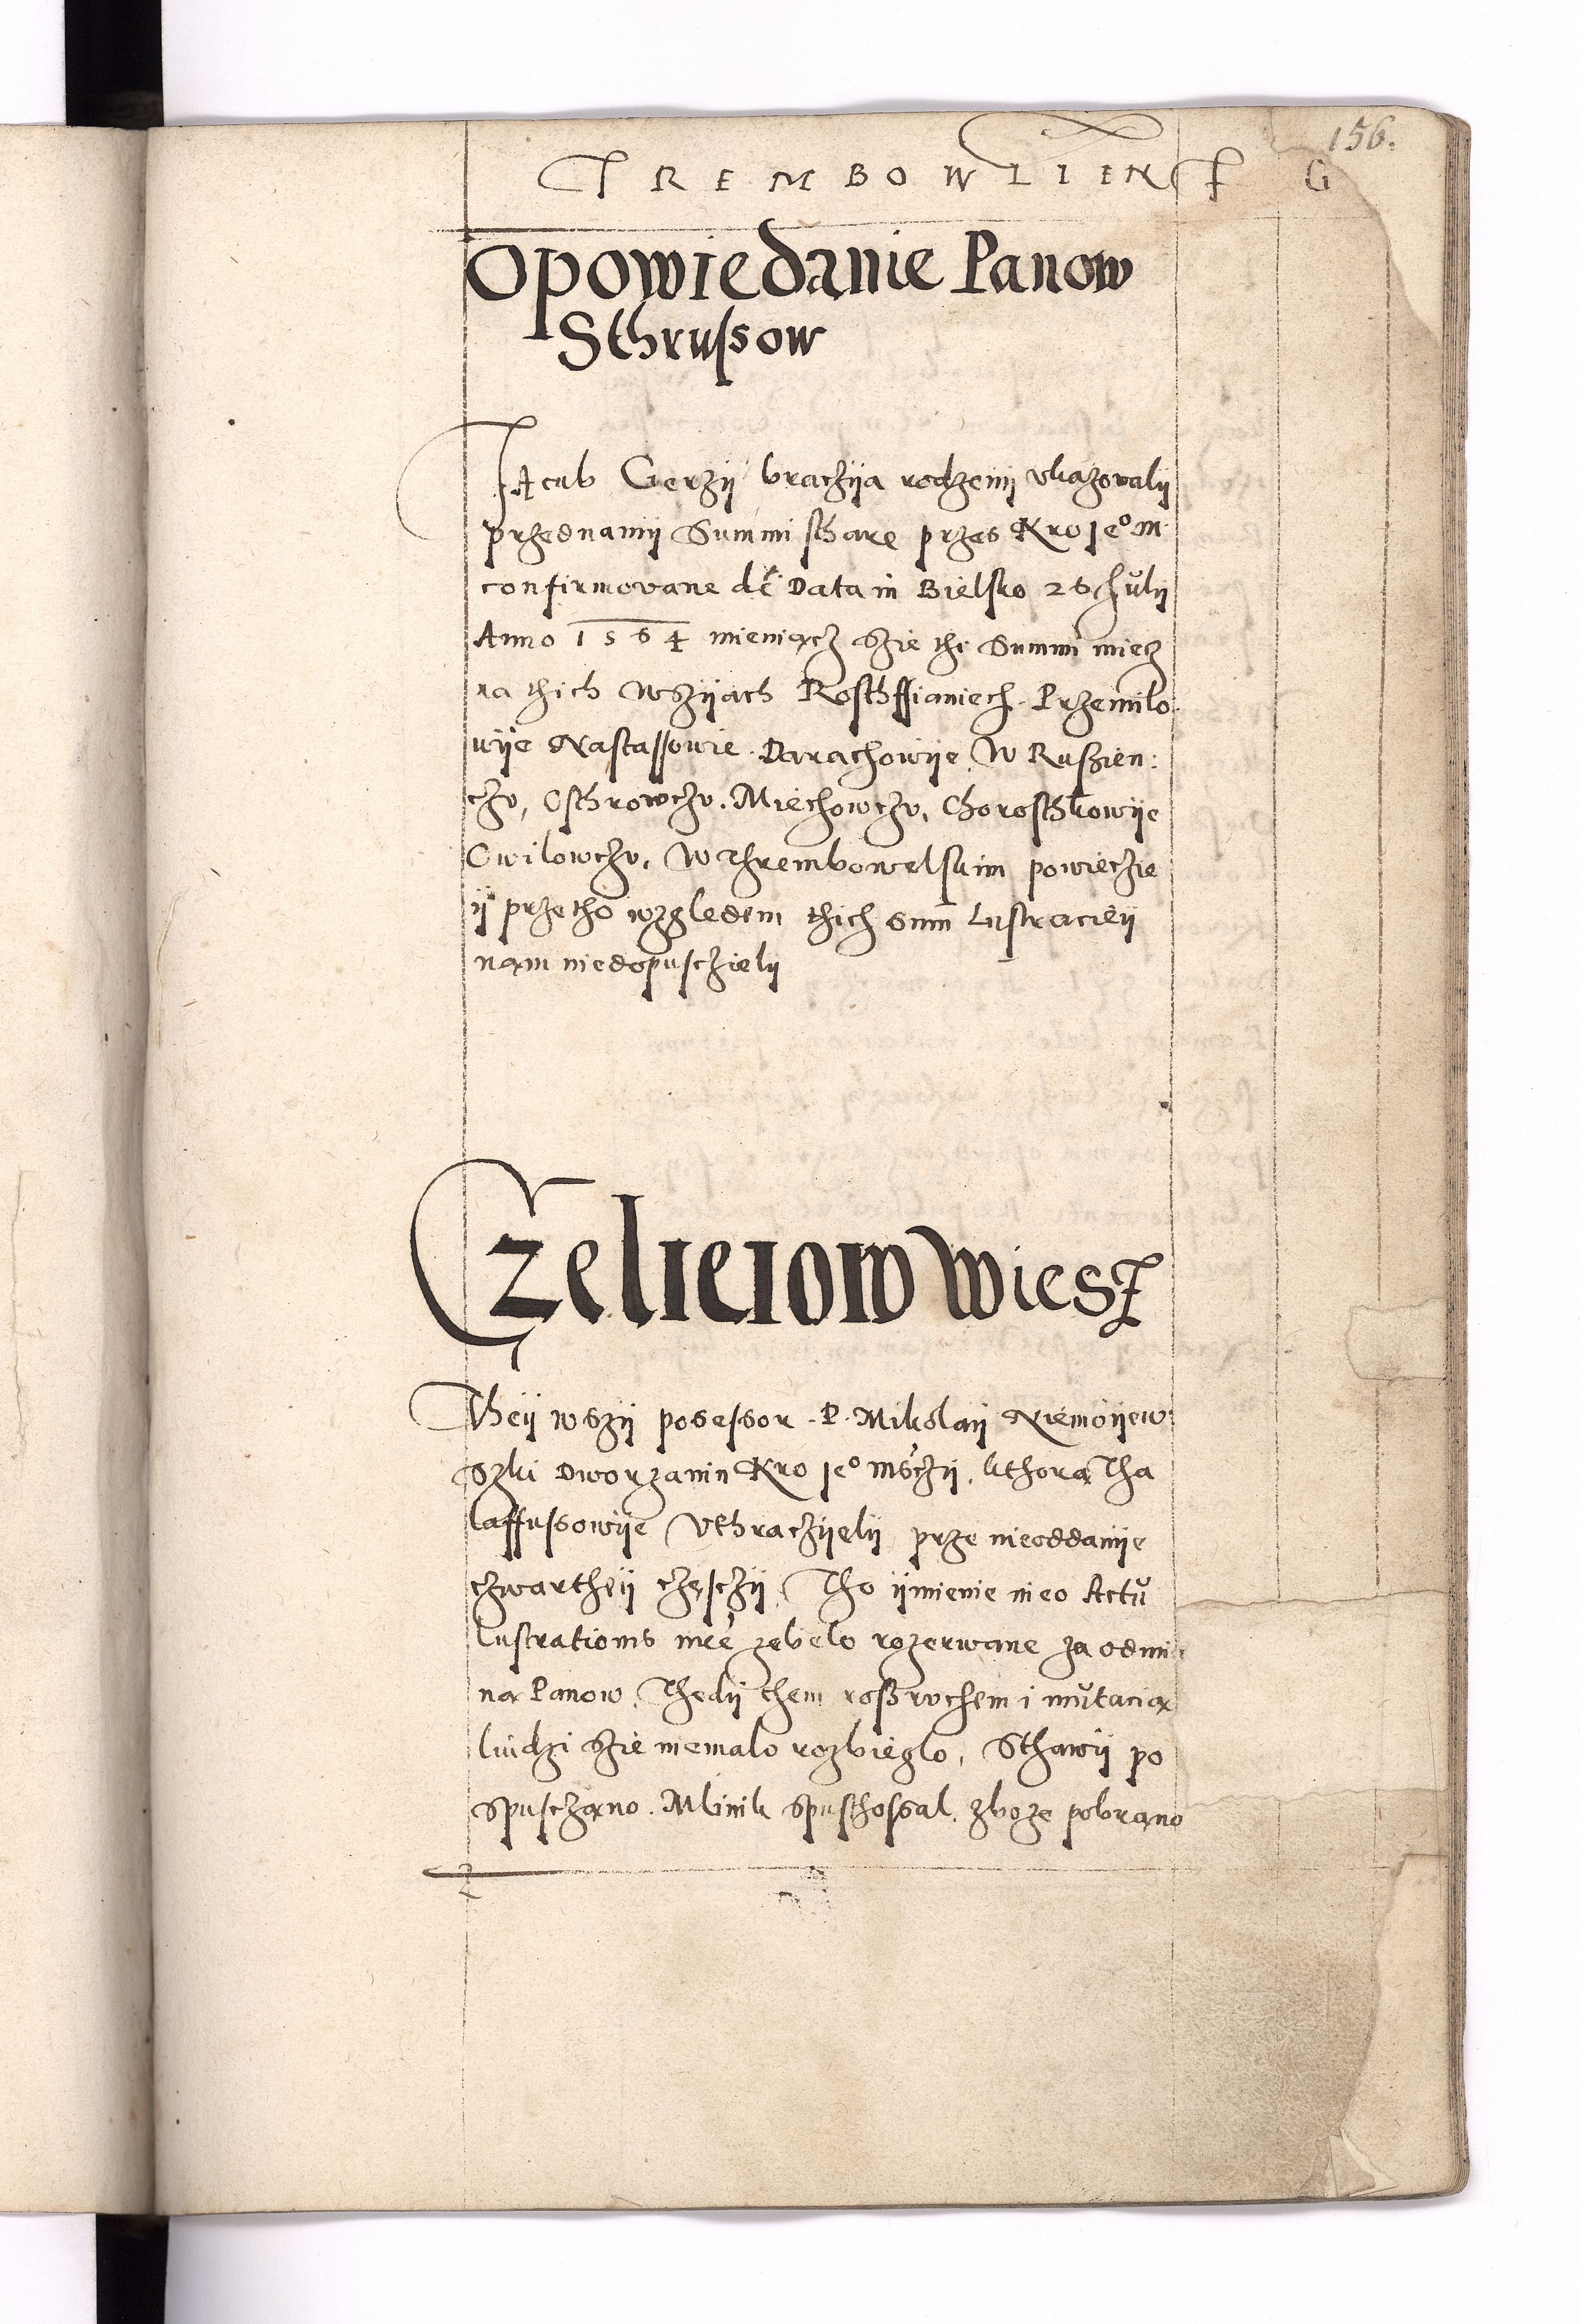 156.
TREMBOWLIEN G
Opowiedanie Panow
Sthrussow
Jacub Gerzÿ braczÿa rodzenÿ vkazovalÿ
przednamÿ Summi sthare przes Kro Jeo M.
confirmovane de Data in Bielsko 26 Julÿ
Anno 1564 mieniącz szie thi Summi miecz
na thich wszÿach Rosthffianiech. Przemilo
wÿe Nastassowie. Darachowÿe. W Ruszien:
czv, Osthrowczv. Miechowczv, Chorosthkowÿe
Owilowczv, W Thrembowelskim powieczie
ÿ przetho wzgledem thich sum Lustraciéÿ
nam niedopusczielÿ
Czeliciow wies
Theÿ wszÿ posessor. P. Mikolaÿ Niemoÿew
szki Dworzanin Kro Jeo Msczÿ. kthorą Tha
laffussowÿe Vthraczÿelÿ prze nieoddanÿe
czwartheÿ czesczÿ. Tho ÿmienie nieo Actu
Lustrationis nre zebelo rozerwane za odmi
ną Panow. Thedÿ them roszruchem i mutacią
luidzi szie niemalo rozbieglo, Sthawÿ po
spusczano. Mlinik spusthossal. zboze pobrano